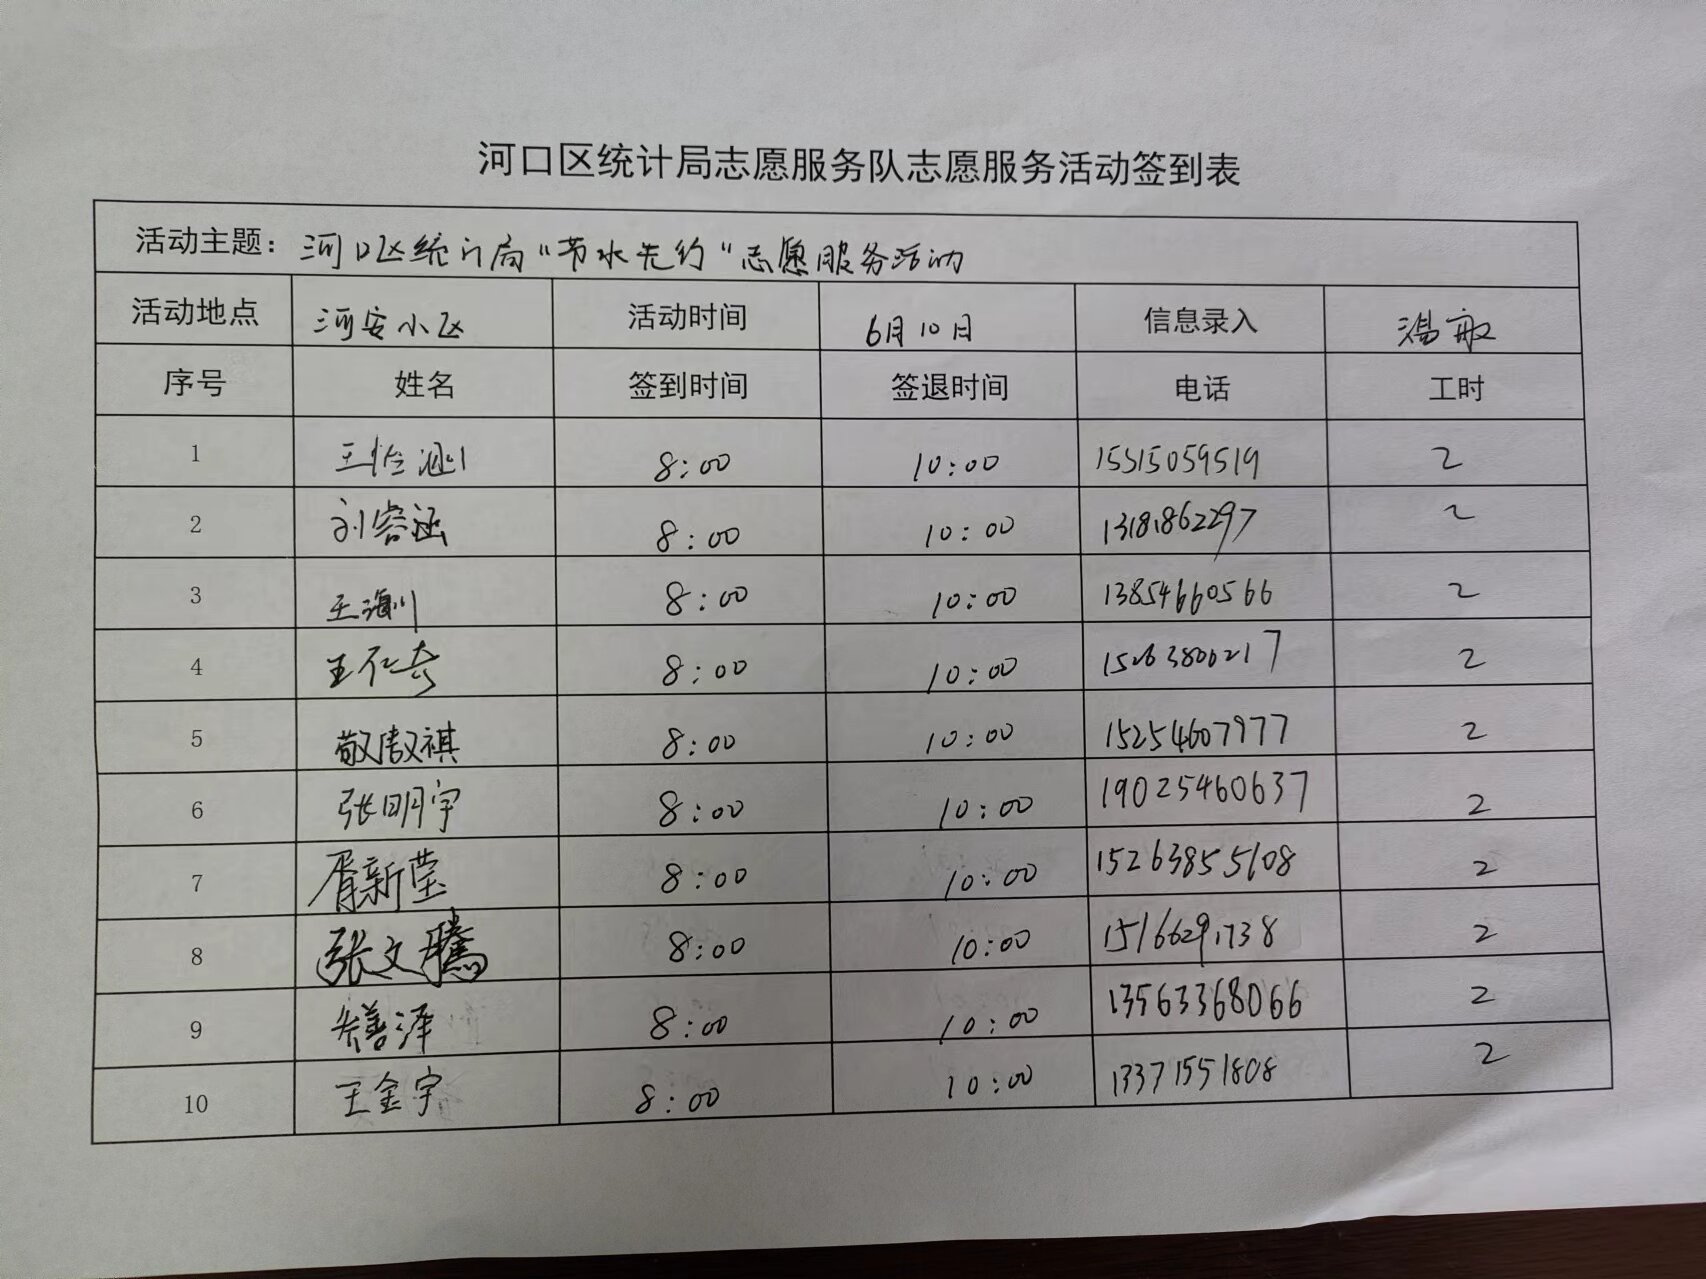 河口区统计局志愿服务队志愿服务活动签到表
活动主题：河口区统计局“节水先约”志愿服务活动
活动地点 河安小区 活动时间 6月10日 信息录入 温敏
序号 姓名 签到时间 签退时间 电话 工时
1 王怡涵 8:00 10:00 15315059519 2
2 刘容涵 8:00 10:00 13181862297 2
3 王海川 8:00 10:00 13854660566 2
4 王仁奇 8:00 10:00 15263800217 2
5 敬傲祺 8:00 10:00 15254607977 2
6 张明宇 8:00 10:00 19025460637 2
7 胥新莹 8:00 10:00 15263855108 2
8 张文騰 8:00 10:00 15166291738 2
9 善泽 8:00 10:00 13563368066 2
10 王金宇 8:00 10:00 13371551808 2